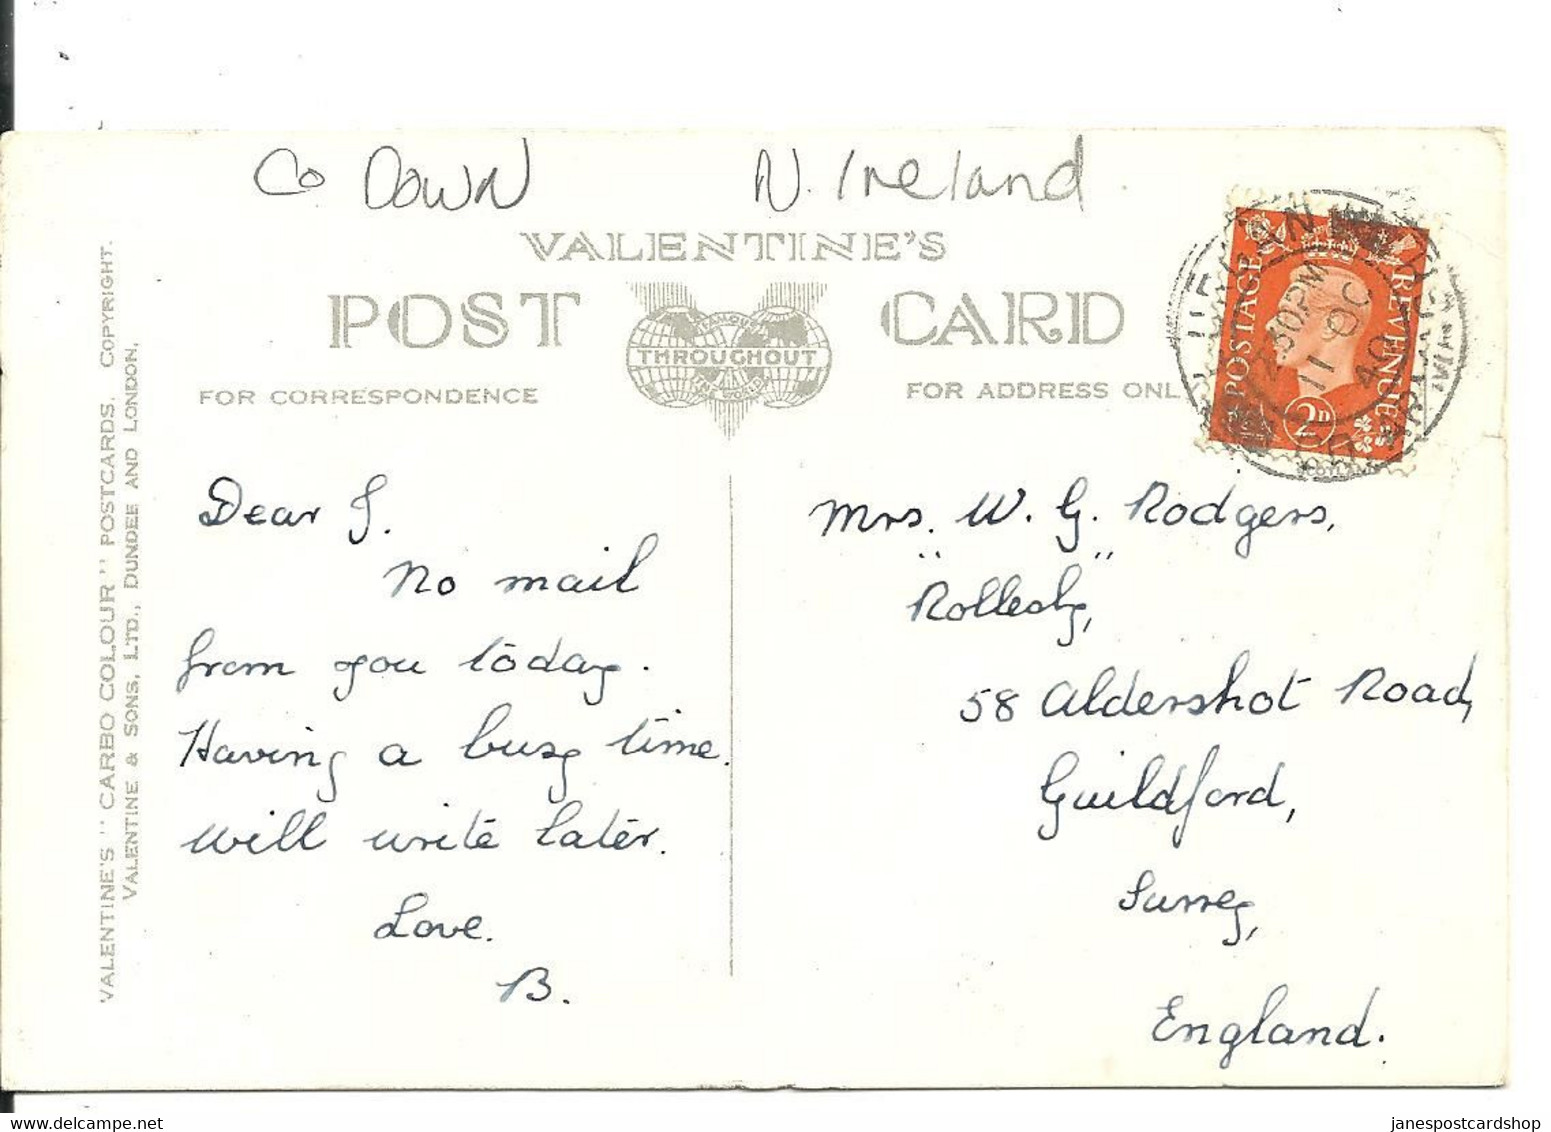 Co Down
N. Ireland
VALENTINE'S
POST CARD
FAMOUS
THROUGHOUT
THE WORLD
FOR CORRESPONDENCE
FOR ADDRESS ONL
POSTAGE
REVENUE
2D
12.30PM
11 OC
40
SCOTLAND
VALENTINE'S "CARBO COLOUR" POSTCARDS. COPYRIGHT.
VALENTINE & SONS, LTD., DUNDEE AND LONDON.
Dear J.
No mail
from you today.
Having a busy time.
Will write later.
Love.
B.
Mrs. W. G. Rodgers,
"Rollesby,"
58 Aldershot Road,
Guildford,
Surrey,
England.
janespostcardshop